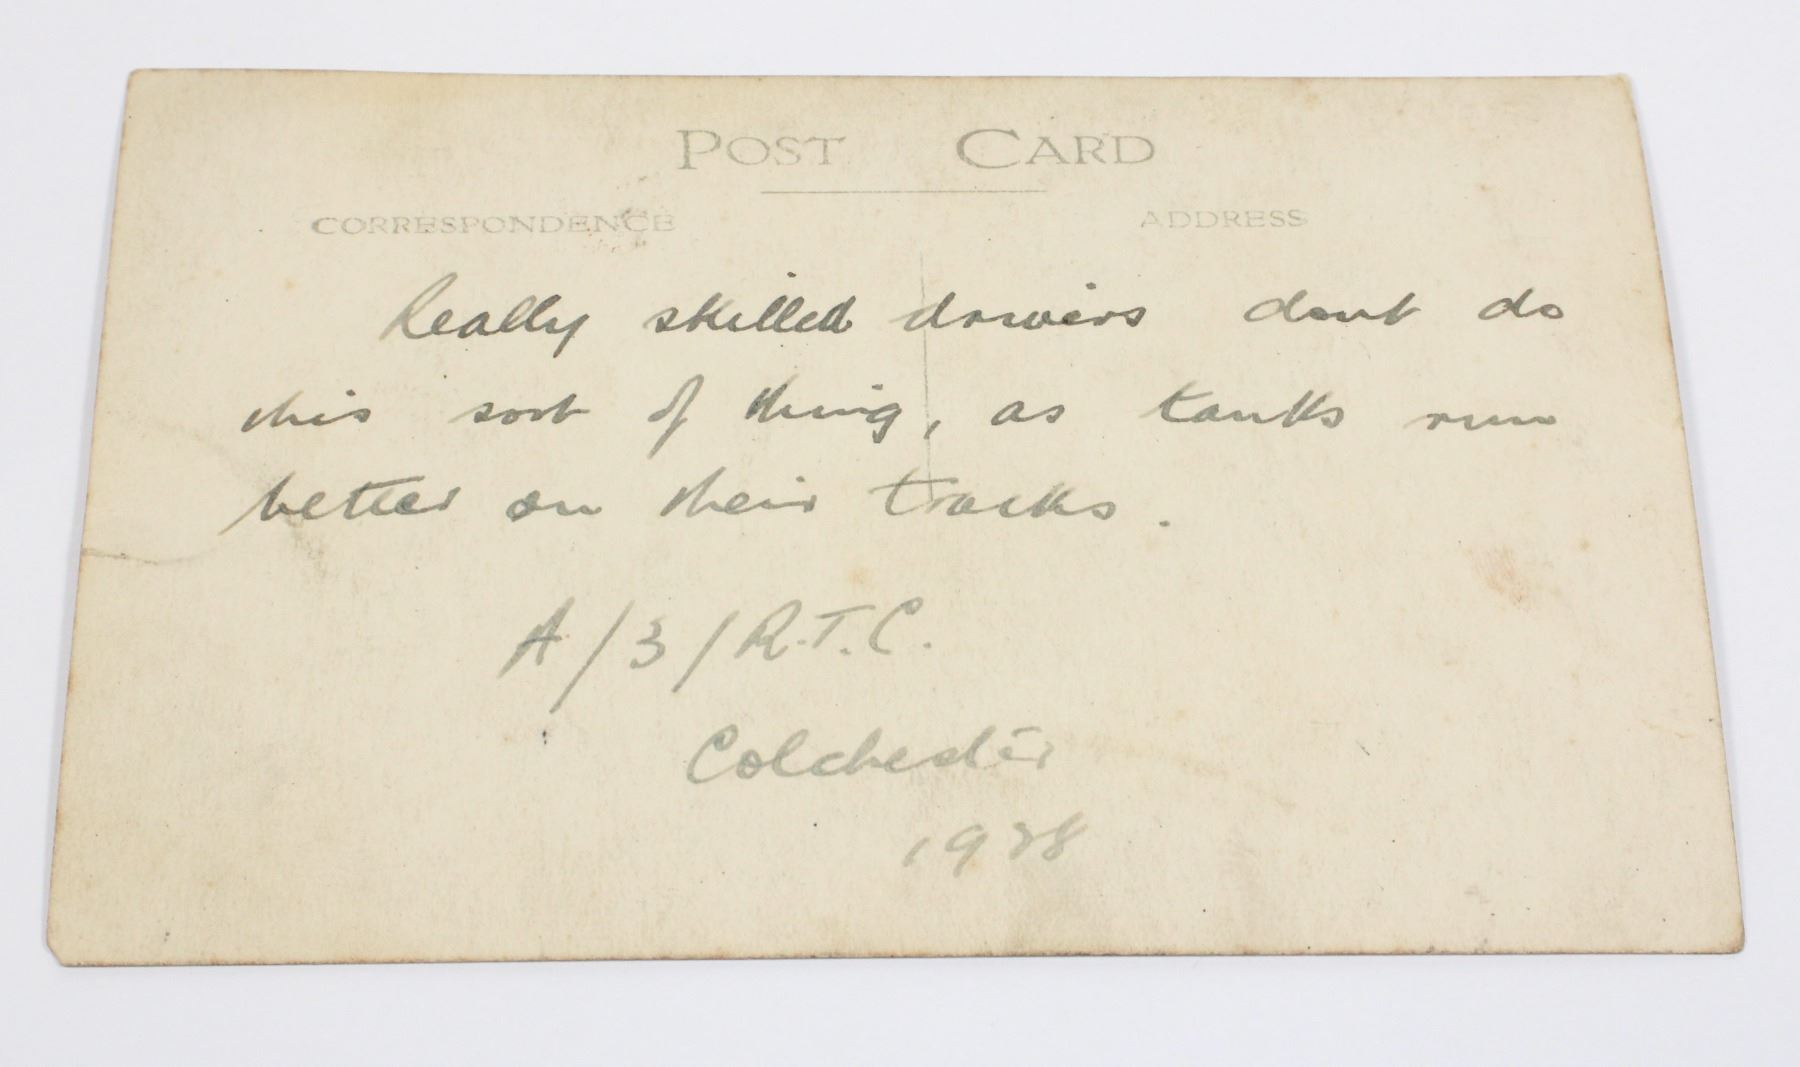 POST CARD
CORRESPONDENCE ADDRESS
Really skilled drivers dont do
this sort of thing, as tanks run
better on their tracks.
A/3/R.T.C.
Colchester
1928